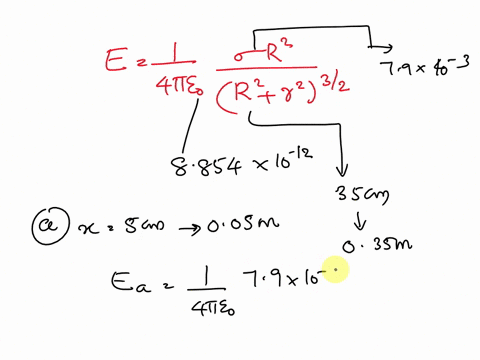 E = 1/4πε₀ σR³/(R² + r²)^3/2
7.9 × 10⁻³
8.854 × 10⁻¹²
35cm
↓
0.35m
(a) x = 5cm → 0.05m
Ea = 1/4πε₀ 7.9 × 10⁻